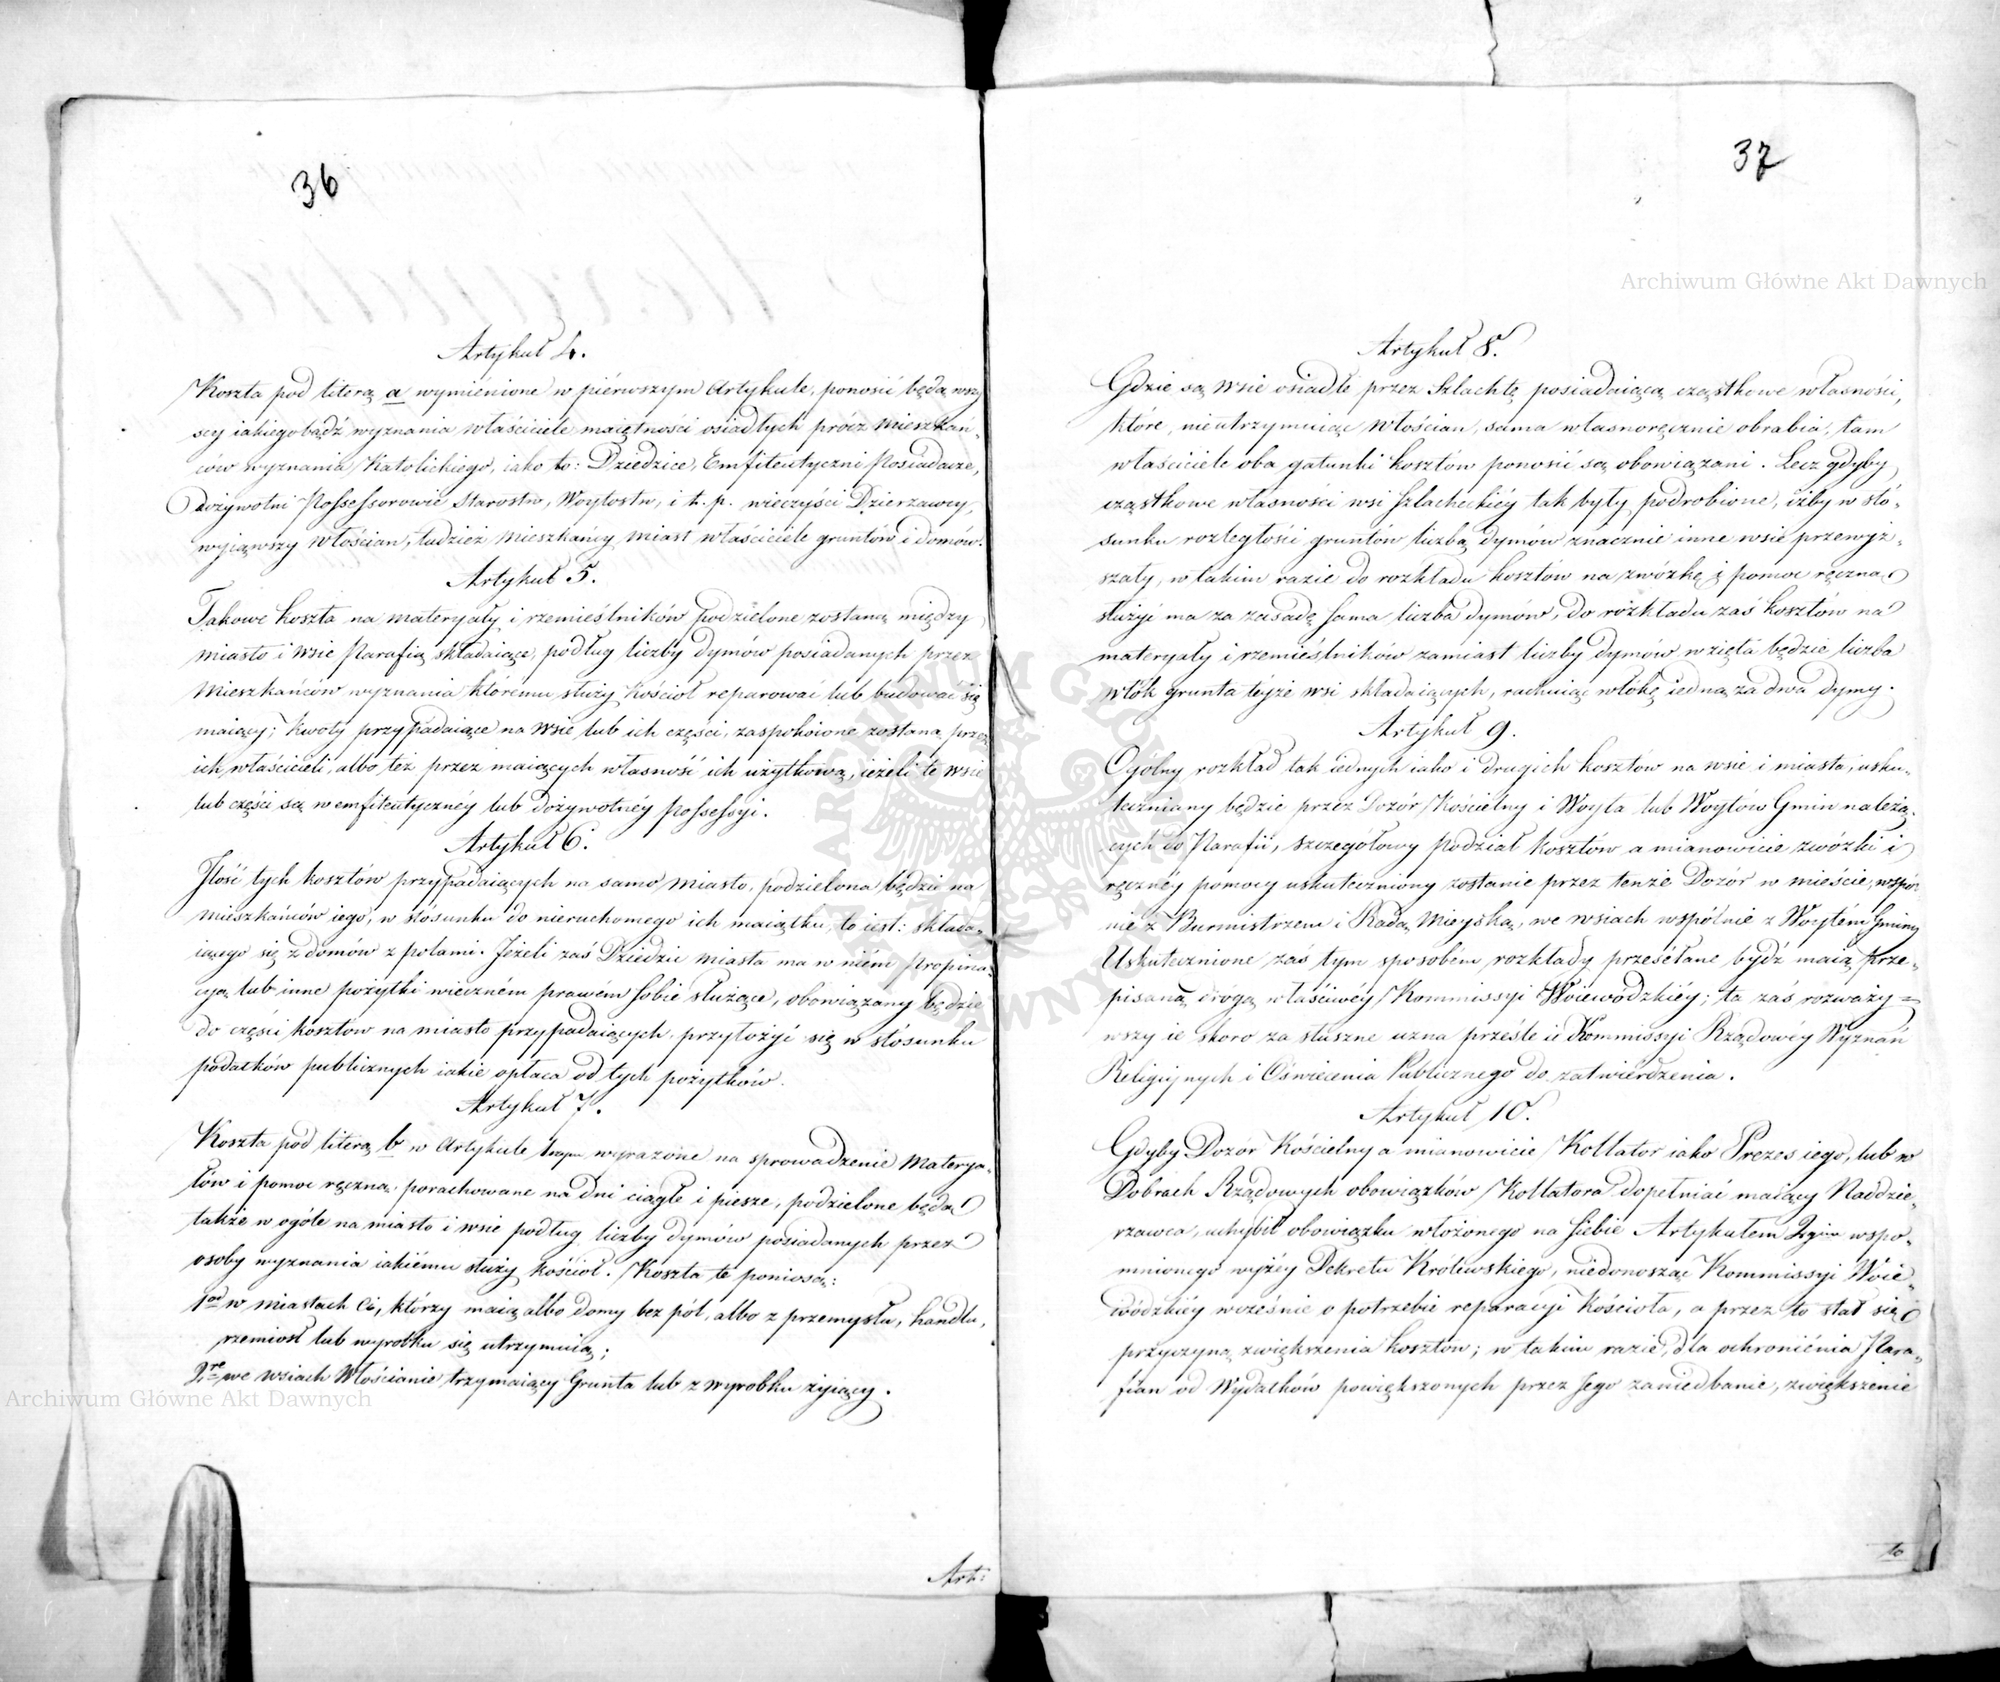 36
Artykuł 4.
Koszta pod literą a wymienione w piérwszym Artykule, ponosić będą wszy
scy iakiegobądź wyznania właściciele maiętności osiadłych prócz Mieszkań-
ców wyznania Katolickiego, iako to: Dziedzice, Emfiteutyczni Posiadacze,
Dożywotni Possessorowie Starostw, Woytostw, i t. p. wieczyści Dzierżawcy,
wyiąwszy Włościan, tudzież Mieszkańcy Miast właściciele gruntów i domów.
Artykuł 5.
Takowe koszta na materyały i rzemieślników podzielone zostaną między
miasto i wsie Parafią składaiące, podług liczby dymów posiadanych przez
Mieszkańców wyznania któremu służy Kościół reparować lub budować się
maiący; Kwoty przypadaiące na Wsie lub ich części, zaspokoione zostaną przez
ich właścicieli, albo też przez maiących własność ich użytkową, ieżeli te wsie
lub części są w emfiteutycznéy lub dożywotnéy Possessyi.
Artykuł 6.
Ilość tych kosztów przypadaiących na samo Miasto, podzielona będzie na
mieszkańców iego, w stósunku do nieruchomego ich maiątku, to iest: składa-
iącego się z domów z polami. Jeżeli zaś Dziedzic miasta ma w niém Propina-
cyą lub inne pożytki wieczném prawém sobie służące, obowiązany będzie
do części kosztów na miasto przypadaiących, przyłożyć się w stósunku
podatków publicznych iakie opłaca od tych pożytków.
Artykuł 7.
Koszta pod literą b w Artykule 1wszym wyrażone na sprowadzenie Materya-
łów i pomoc ręczną, porachowane na dni ciągłe i piesze, podzielone będą
także w ogóle na miasto i wsie podług liczby dymów posiadanych przez
osoby wyznania iakiému służy kościoł. Koszta te poniosą:
1od w miastach Ci, którzy maią albo domy bez pól, albo z przemysłu, handlu,
rzemiosł lub wyrobku się utrzymuią;
2re we wsiach Włościanie trzymaiący Grunta lub z wyrobku żyiący.
Art:
37
Artykuł 8.
Gdzie są Wsie osiadłe przez Szlachtę posiadaiącą cząstkowe własności,
które, nieutrzymuiąc Włościan, sama własnoręcznie obrabia, tam
właściciele oba gatunki kosztów ponosić są obowiązani. Lecz gdyby
cząstkowe własności wsi Szlacheckiéy tak były podrobione, iżby w stó-
sunku rozległości gruntów liczbą dymów znacznie inne wsie przewyż-
szały, w takim razie do rozkładu kosztów na zwózkę i pomoc ręczną
służyć ma za zasadę sama liczba dymów, do rozkładu zaś kosztów na
materyały i rzemieślników zamiast liczby dymów wzięta będzie liczba
włók grunta téyże wsi składaiących, rachuiąc włókę iedną za dwa dymy.
Artykuł 9.
Ogólny rozkład tak iednych iako i drugich kosztów na wsie i miasta, usku-
teczniany będzie przez Dozór Kościelny i Woyta lub Woytów Gmin należą-
cych do Parafii, szczegółowy podział kosztów a mianowicie zwózki i
ręcznéy pomocy uskuteczniony zostanie przez tenże Dozór w mieście, wspól-
nie z Burmistrzem i Radą Mieyską, we wsiach wspólnie z Woytém Gminy
Uskutecznione zaś tym sposobém rozkłady przeséłane bydź maią prze-
pisaną drogą właściwéy Kommissyi Woiewódzkiéy; ta zaś rozważy-
wszy ie skoro za słuszne uzna prześle ie Kommissyi Rządowéy Wyznań
Religiynych i Oświecenia Publicznego do zatwierdzenia.
Artykuł 10.
Gdyby Dozór Kościelny a mianowicie Kollator iako Prezes iego, lub w
Dobrach Rządowych obowiązków Kollatora dopełniać maiący Naddzie-
rżawca, uchybił obowiązku włożonego na siebie Artykułem 2gim wspo-
mnionego wyżéy Dekretu Królewskiego, niedonosząc Kommissyi Woie-
wódzkiéy wcześnie o potrzebie reparacyi Kościoła, a przez to stał się
przyczyną zwiększenia kosztów; w takim razie, dla ochroniénia Para-
fian od Wydatków powiększonych przez Jego zaniedbanie, zwiększenie
to
Archiwum Główne Akt Dawnych
Archiwum Główne Akt Dawnych